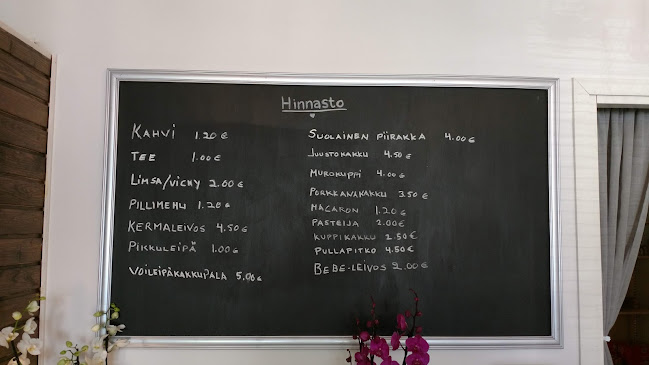 Hinnasto
KAHVI 1.20 €
TEE 1.00 €
LIMSA/VICHY 2.00 €
PILLIMEHU 1.20 €
KERMALEIVOS 4.50 €
PIKKULEIPÄ 1.00 €
VOILEIPÄKAKKUPALA 5.00 €
SUOLAINEN PIIRAKKA 4.00 €
JUUSTOKAKKU 4.50 €
MUROKUPPI 4.00 €
PORKKANAKAKKU 3.50 €
MACARON 1.20 €
PASTEIJA 2.00 €
KUPPIKAKKU 2.50 €
PULLAPITKO 4.50 €
BEBE-LEIVOS 2.00 €